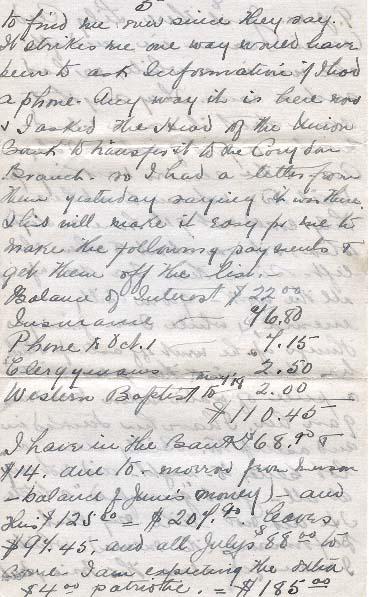 5
to find me ever since they say.
It strikes me one way would have
been to ask Information if I had
a phone. Any way it is here now
& I asked the Head of the Union
Bank to transfer it to the Corydon
Branch. so I had a letter from
them yesterday saying it was there.
This will make it easy for me to
make the following payments &
get them off the list. –
Balance of Interest $ 22.00
Insurance 76.80
Phone to Oct. 1 7.15
Clergymans 2.50
Western Baptist to May/19 2.00
$ 110.45
I have in the Bank $68.90 &
$14. due to-morrow from
– balance of June's money) – and
this $125.00 = $207.90. Leaves
$97.45. and all July's $88.00 to
come. I am expecting the extra
$4.00 patriotic. = $185.00